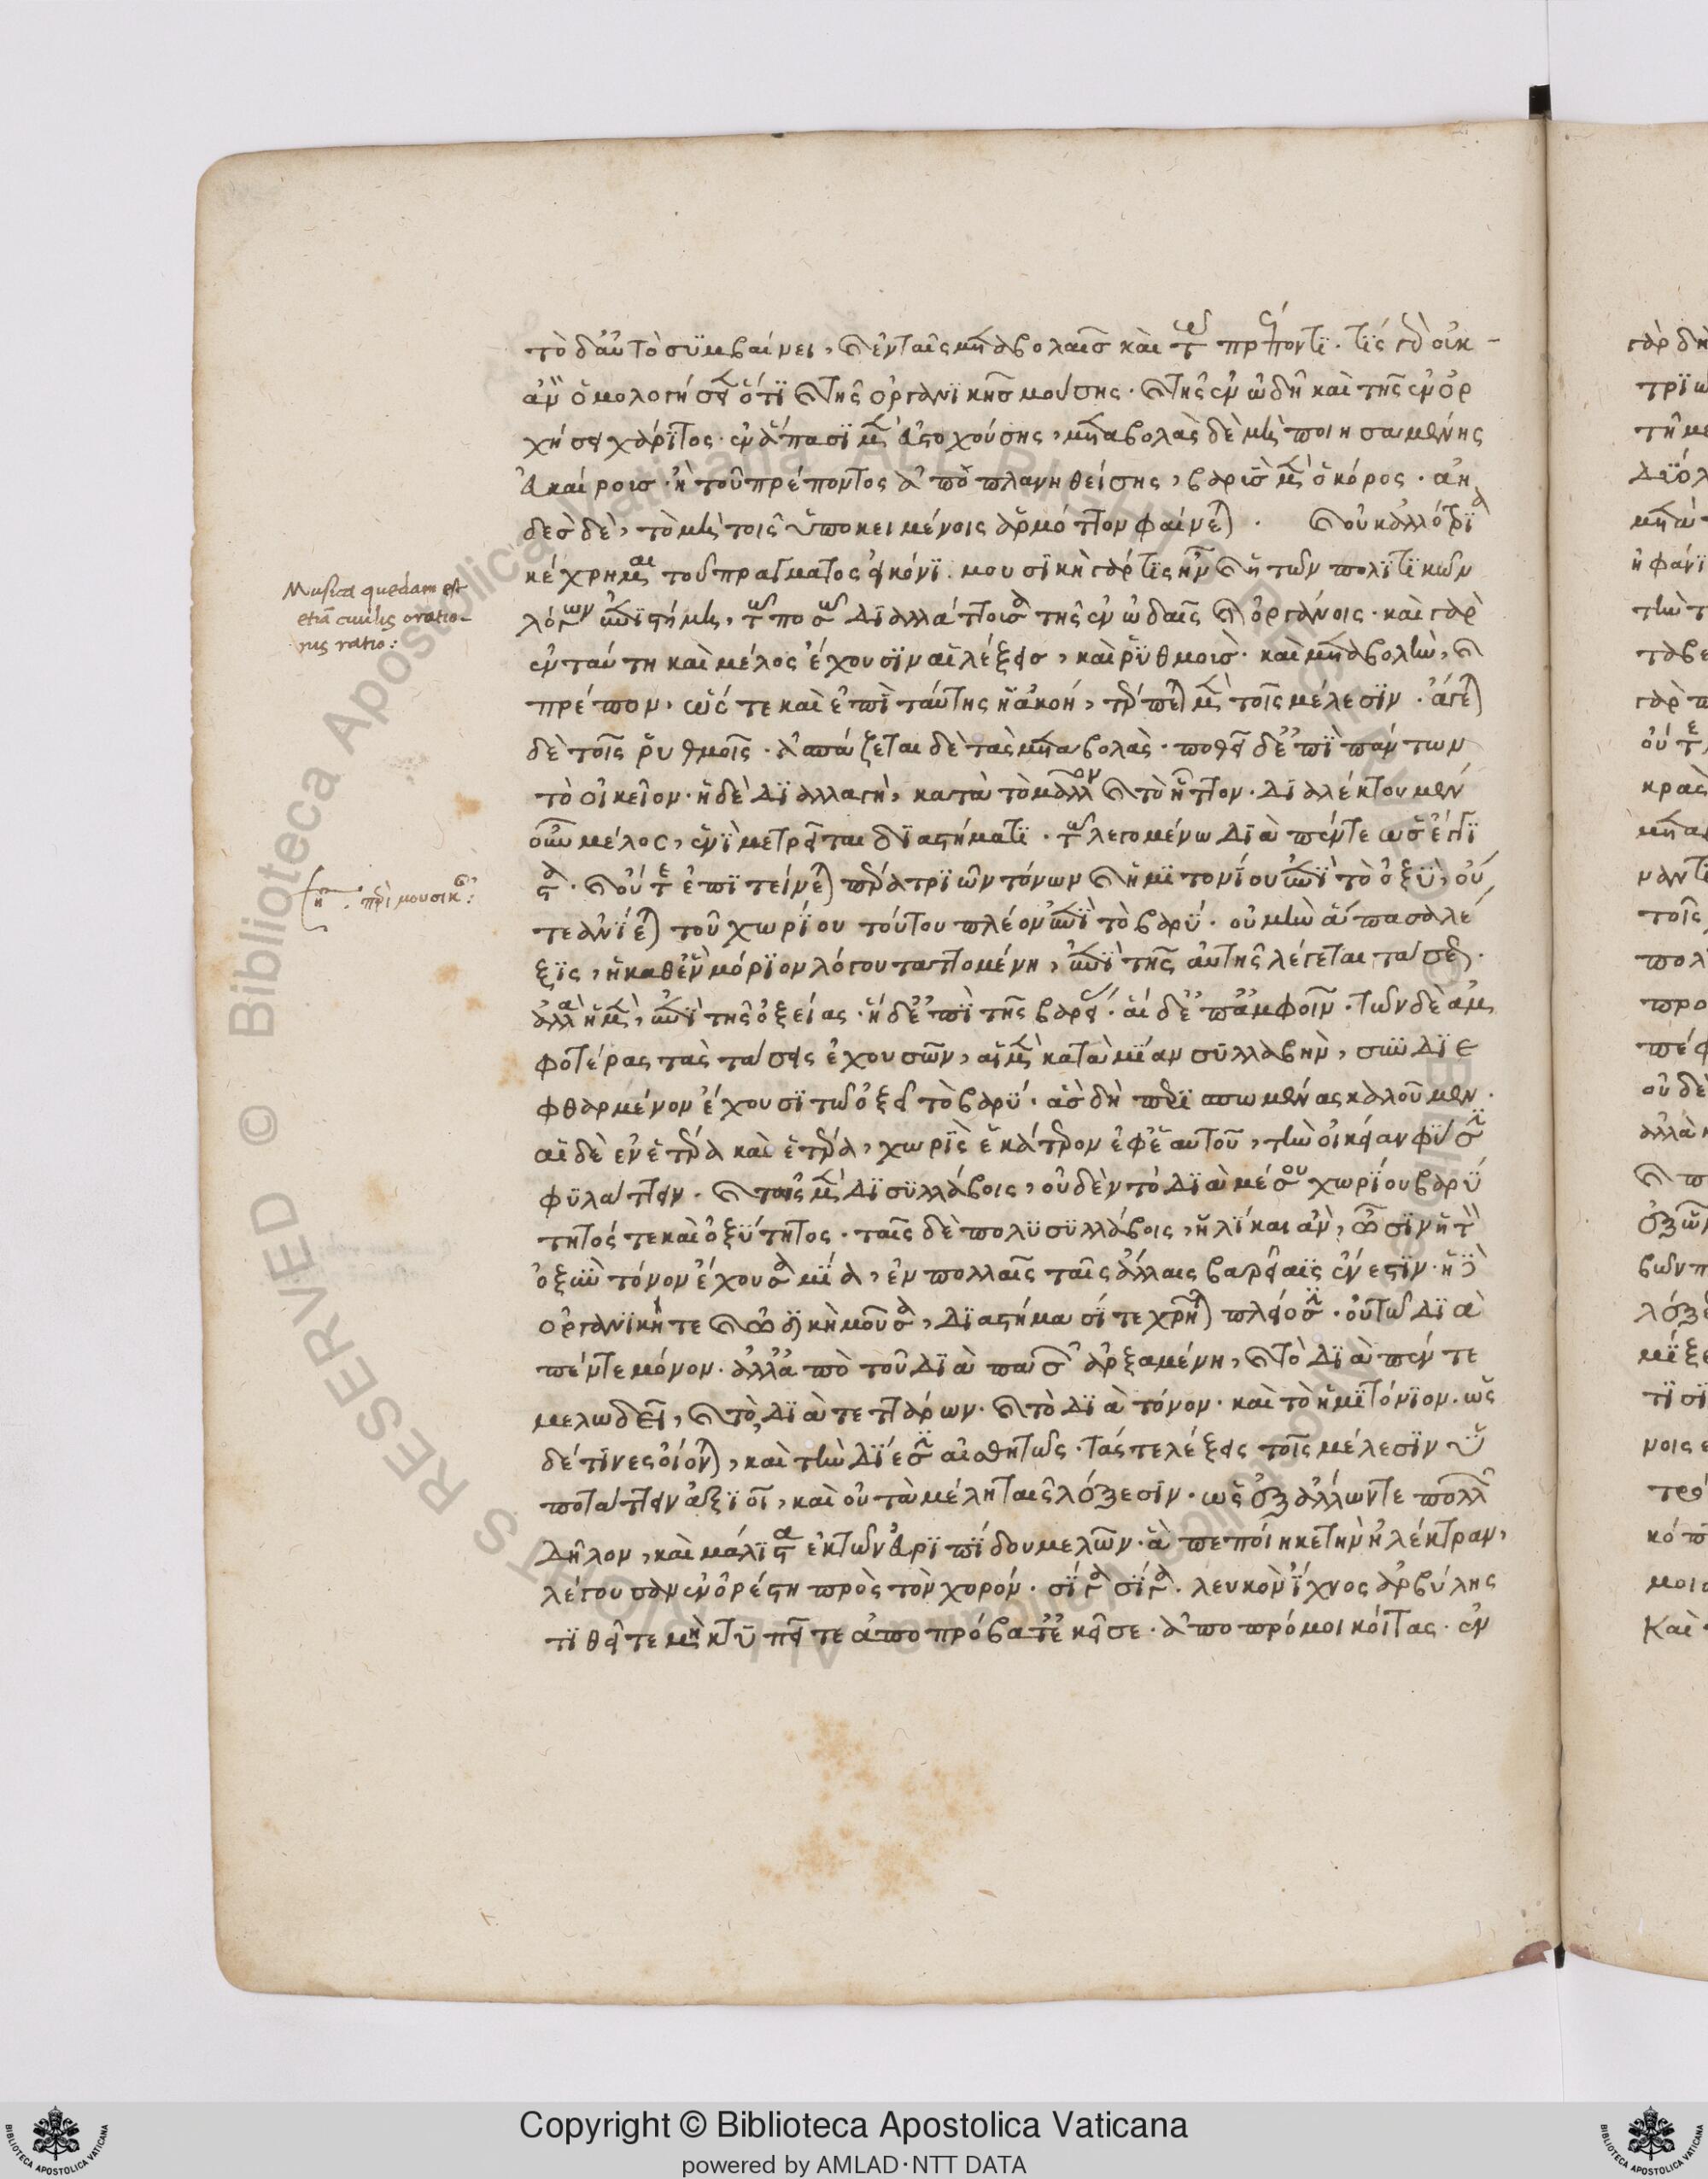 τὸ δ' αὐτὸ συμβαίνει, καὶ ἐν ταῖς μεταβολαῖς καὶ τῷ πρέποντι. τίς γὰρ οὐκ
ἂν ὁμολογήσειεν ὅτι καὶ τῆς ὀργανικῆς μούσης. καὶ τῆς ἐν ὠδῇ καὶ τῆς ἐν ὀρ
χήσει χάριτος. ἐν ἅπασι μὲν εὐστοχούσης, μεταβολὰς δὲ μὴ ποιησαμένης
εὐκαίροις. ἢ τοῦ πρέποντος ἀποπλανηθείσης, βαρὺς μὲν ὁ κόρος. ἀη
δὲς δὲ, τὸ μὴ τοῖς ὑποκειμένοις ἁρμόττον φαίνεται. καὶ οὐκ ἀλλοτρίᾳ
κέχρημαι τοῦ πράγματος εἰκόνι. μουσικὴ γάρ τις ἦν καὶ ἡ τῶν πολιτικῶν
λόγων ἐπιστήμη, τῷ ποσῷ διαλλάττουσα τῆς ἐν ὠδαῖς καὶ ὀργάνοις. καὶ γὰρ
ἐν ταύτῃ καὶ μέλος ἔχουσιν αἱ λέξεις, καὶ ῥυθμοὺς. καὶ μεταβολὴν, καὶ
πρέπον, ὥστε καὶ ἐπὶ ταύτης ἡ ἀκοή, τέρπεται μὲν τοῖς μέλεσιν. ἄγεται
δὲ τοῖς ῥυθμοῖς. ἀσπάζεται δὲ τὰς μεταβολὰς. ποθεῖ δ' ἐπὶ πάντων
τὸ οἰκεῖον. ἡ δὲ διαλλαγὴ, κατὰ τὸ μᾶλλον καὶ τὸ ἧττον. διαλέκτου μὲν
οὖν μέλος, ἑνὶ μετρεῖται διαστήματι. τῷ λεγομένῳ διὰ πέντε ὡς ἔγγι
στα. καὶ οὔτε ἐπιτείνεται πέρα τριῶν τόνων καὶ ἡμιτονίου ἐπὶ τὸ ὀξὺ, οὔ
τε ἀνίεται τοῦ χωρίου τούτου πλέον ἐπὶ τὸ βαρύ. οὐ μὴν ἅπασα λέ
ξις, ἡ καθ' ἓν μόριον λόγου ταττομένη, ἐπὶ τῆς αὐτῆς λέγεται τάσεως.
ἀλλὰ ἡ μὲν, ἐπὶ τῆς ὀξείας. ἡ δ' ἐπὶ τῆς βαρείας. αἱ δ' ἐπ' ἀμφοῖν. τῶν δὲ ἀμ
φοτέρας τὰς τάσεις ἐχουσῶν, αἱ μὲν κατὰ μίαν συλλαβὴν, συνδιε
φθαρμένον ἔχουσι τῷ ὀξεῖ τὸ βαρύ. ἃς δὴ περισπωμένας καλοῦμεν.
αἱ δὲ ἐν ἑτέρᾳ καὶ ἑτέρᾳ, χωρὶς ἑκάτερον ἐφ' ἑαυτοῦ, τὴν οἰκείαν φύσιν
φυλάττειν. καὶ ταῖς μὲν δισυλλάβοις, οὐδὲν τὸ διὰ μέσου χωρίου βαρύ
τητός τε καὶ ὀξύτητος. ταῖς δὲ πολυσυλλάβοις, ἡλίκαι ἂν, ὦσιν ἡ τὸν
ὀξὺν τόνον ἔχουσα μία, ἐν πολλαῖς ταῖς ἄλλαις βαρείαις ἔνεστιν. ἡ δὲ
ὀργανική τε καὶ ὠδικὴ μοῦσα, διαστήμασί τε χρῆται πλείοσιν. οὐ τῷ διὰ
πέντε μόνον. ἀλλ' ἀπὸ τοῦ διὰ πασῶν ἀρξαμένη, καὶ τὸ διὰ πέντε
μελωδεῖ, καὶ τὸ διὰ τεττάρων. καὶ τὸ διὰ τόνον. καὶ τὸ ἡμιτόνιον. ὡς
δέ τινες οἴονται, καὶ τὴν δίεσιν αἰσθητῶς. τάς τε λέξεις τοῖς μέλεσιν ὑ
ποτάττειν ἀξιοῖ, καὶ οὐ τὰ μέλη ταῖς λέξεσιν. ὡς ἐξ ἄλλων τε πολλῶν
δῆλον, καὶ μάλιστα ἐκ τῶν εὐριπίδου μελῶν. ἃ πεποίηκε τὴν ἠλέκτραν,
λέγουσαν ἐν ὀρέστῃ πρὸς τὸν χορόν. σῖγα σῖγα. λευκὸν ἴχνος ἀρβύλης
τιθεῖτε μὴ κτυπεῖτε ἀποπρόβατε ἐκεῖσε. ἀποπρό μοι κοίτας. ἐν
Musica quedam est
etiā ciuilis oratio-
nis ratio:
περὶ μουσικῆς:
Copyright © Biblioteca Apostolica Vaticana
powered by AMLAD·NTT DATA